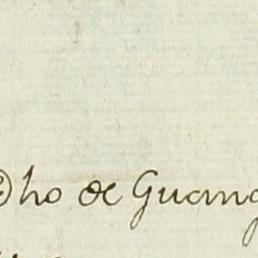 ho de Guang